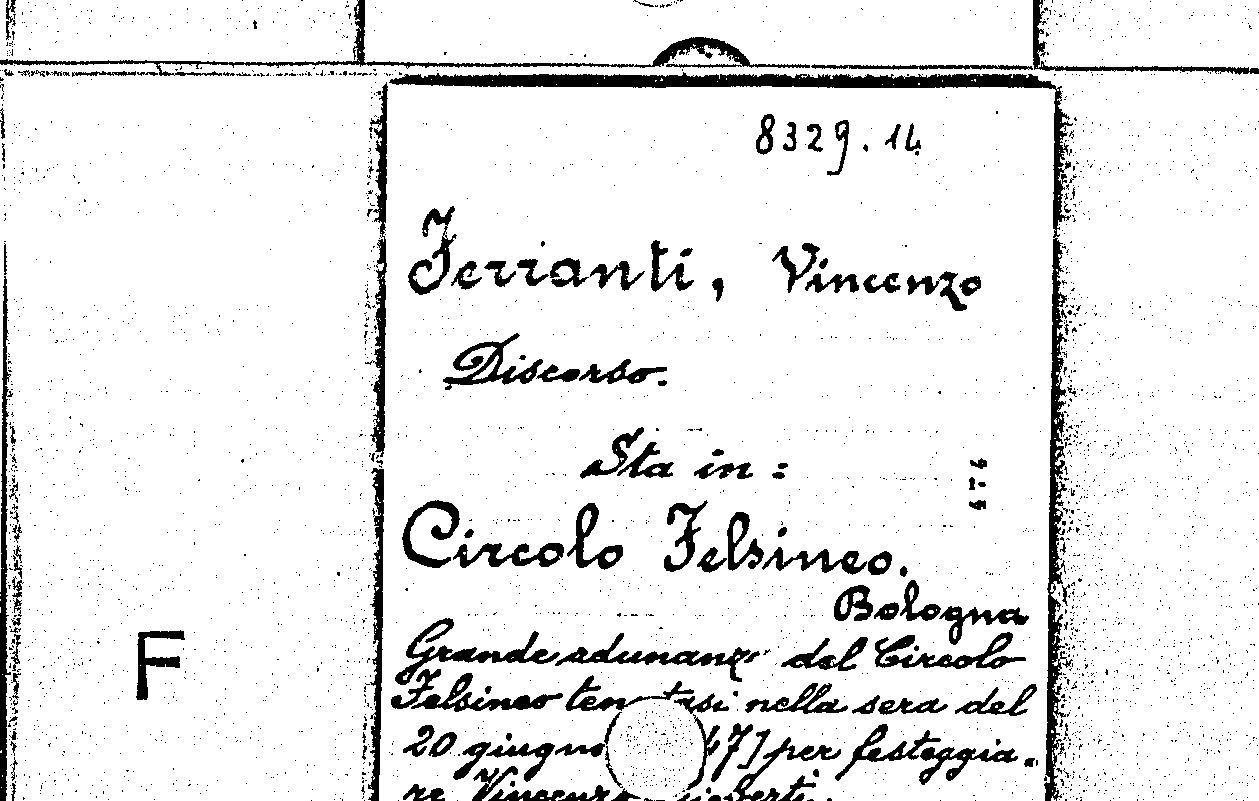 8329.14
Ferranti, Vincenzo
Discorso.
Sta in :
Circolo Felsineo.
Bologna
Grande adunanza del Circolo
F
Felsineo nella sera del
20 giugno 47] per festeggia-
re Vincenzo